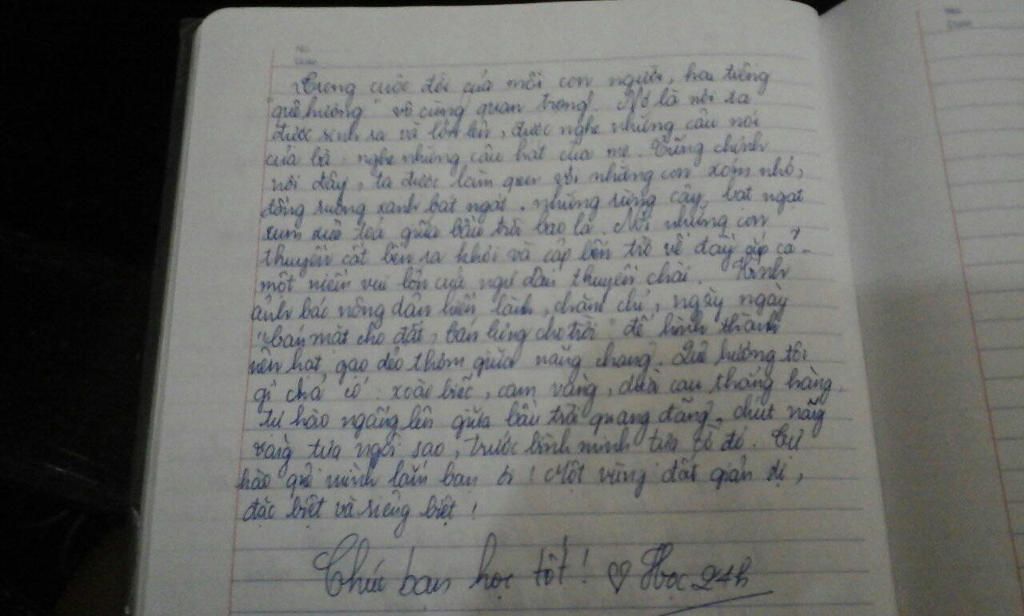 No.
Date
Trong cuộc đời của mỗi con người, hai tiếng
"quê hương" vô cùng quan trọng. Nó là nơi ta
được sinh ra và lớn lên, được nghe những câu nói
của bà, nghe những câu hát của mẹ. Cũng chính
nơi đây, ta được làm quen với những con xóm nhỏ,
đồng ruộng xanh bát ngát, những rừng cây, bạt ngạt
xum xuê toả giữa bầu trời bao la. Nơi những con
thuyền cất bến ra khơi và cập bến trở về đầy ắp cá -
một niềm vui lớn của ngư dân thuyền chài. Hình
ảnh bác nông dân hiền lành, chăm chỉ, ngày ngày
"bán mặt cho đất, bán lưng cho trời" để hình thành
nên hạt gạo dẻo thơm giữa nắng chang. Quê hương tôi
gì chả có: xoài biếc, cam vàng, dừa cau thẳng hàng.
Tự hào ngẩng lên giữa bầu trời quang đãng, chút nắng
vàng tựa ngôi sao, trước bình minh tựa cờ đỏ. Tự
hào quê mình lắm bạn ơi! Một vùng đất giản dị,
đặc biệt và riêng biệt!
Chúc bạn học tốt! ♡ Học 24h
No.
Date